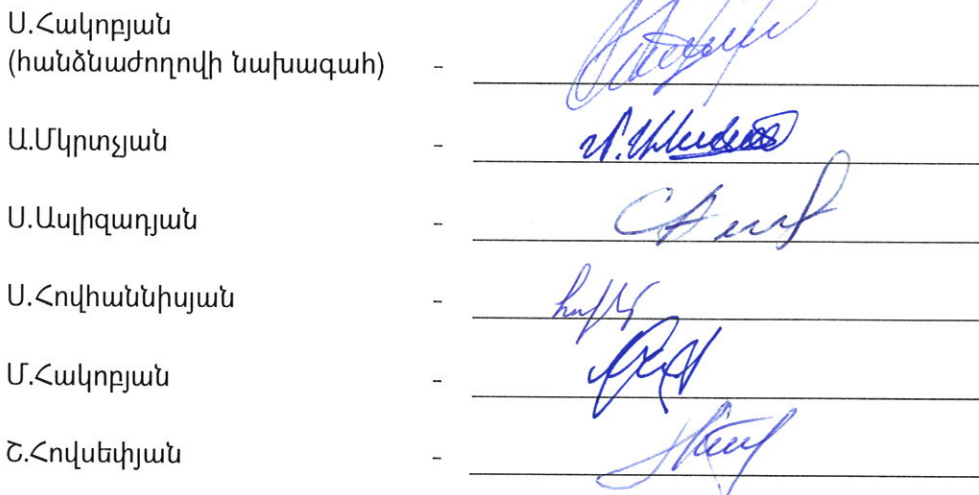 Ս.Հակոբյան
(հանձնաժողովի նախագահ) -
Ա.Մկրտչյան -
Ս.Ասլիզադյան -
Ս.Հովհաննիսյան -
Մ.Հակոբյան -
Շ.Հովսեփյան -